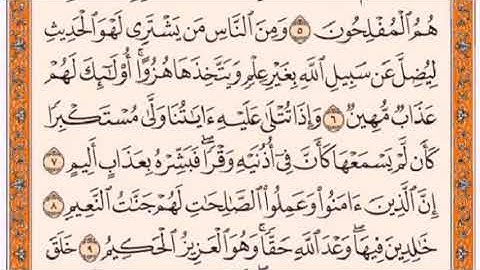 هُمُ ٱلْمُفْلِحُونَ ٥ وَمِنَ ٱلنَّاسِ مَن يَشْتَرِى لَهْوَ ٱلْحَدِيثِ
لِيُضِلَّ عَن سَبِيلِ ٱللَّهِ بِغَيْرِ عِلْمٍ وَيَتَّخِذَهَا هُزُوًا ۚ أُو۟لَٰٓئِكَ لَهُمْ
عَذَابٌ مُّهِينٌ ٦ وَإِذَا تُتْلَىٰ عَلَيْهِ ءَايَٰتُنَا وَلَّىٰ مُسْتَكْبِرًا
كَأَن لَّمْ يَسْمَعْهَا كَأَنَّ فِىٓ أُذُنَيْهِ وَقْرًا ۖ فَبَشِّرْهُ بِعَذَابٍ أَلِيمٍ ٧
إِنَّ ٱلَّذِينَ ءَامَنُوا۟ وَعَمِلُوا۟ ٱلصَّٰلِحَٰتِ لَهُمْ جَنَّٰتُ ٱلنَّعِيمِ ٨
خَٰلِدِينَ فِيهَا ۖ وَعْدَ ٱللَّهِ حَقًّا ۚ وَهُوَ ٱلْعَزِيزُ ٱلْحَكِيمُ ٩ خَلَقَ